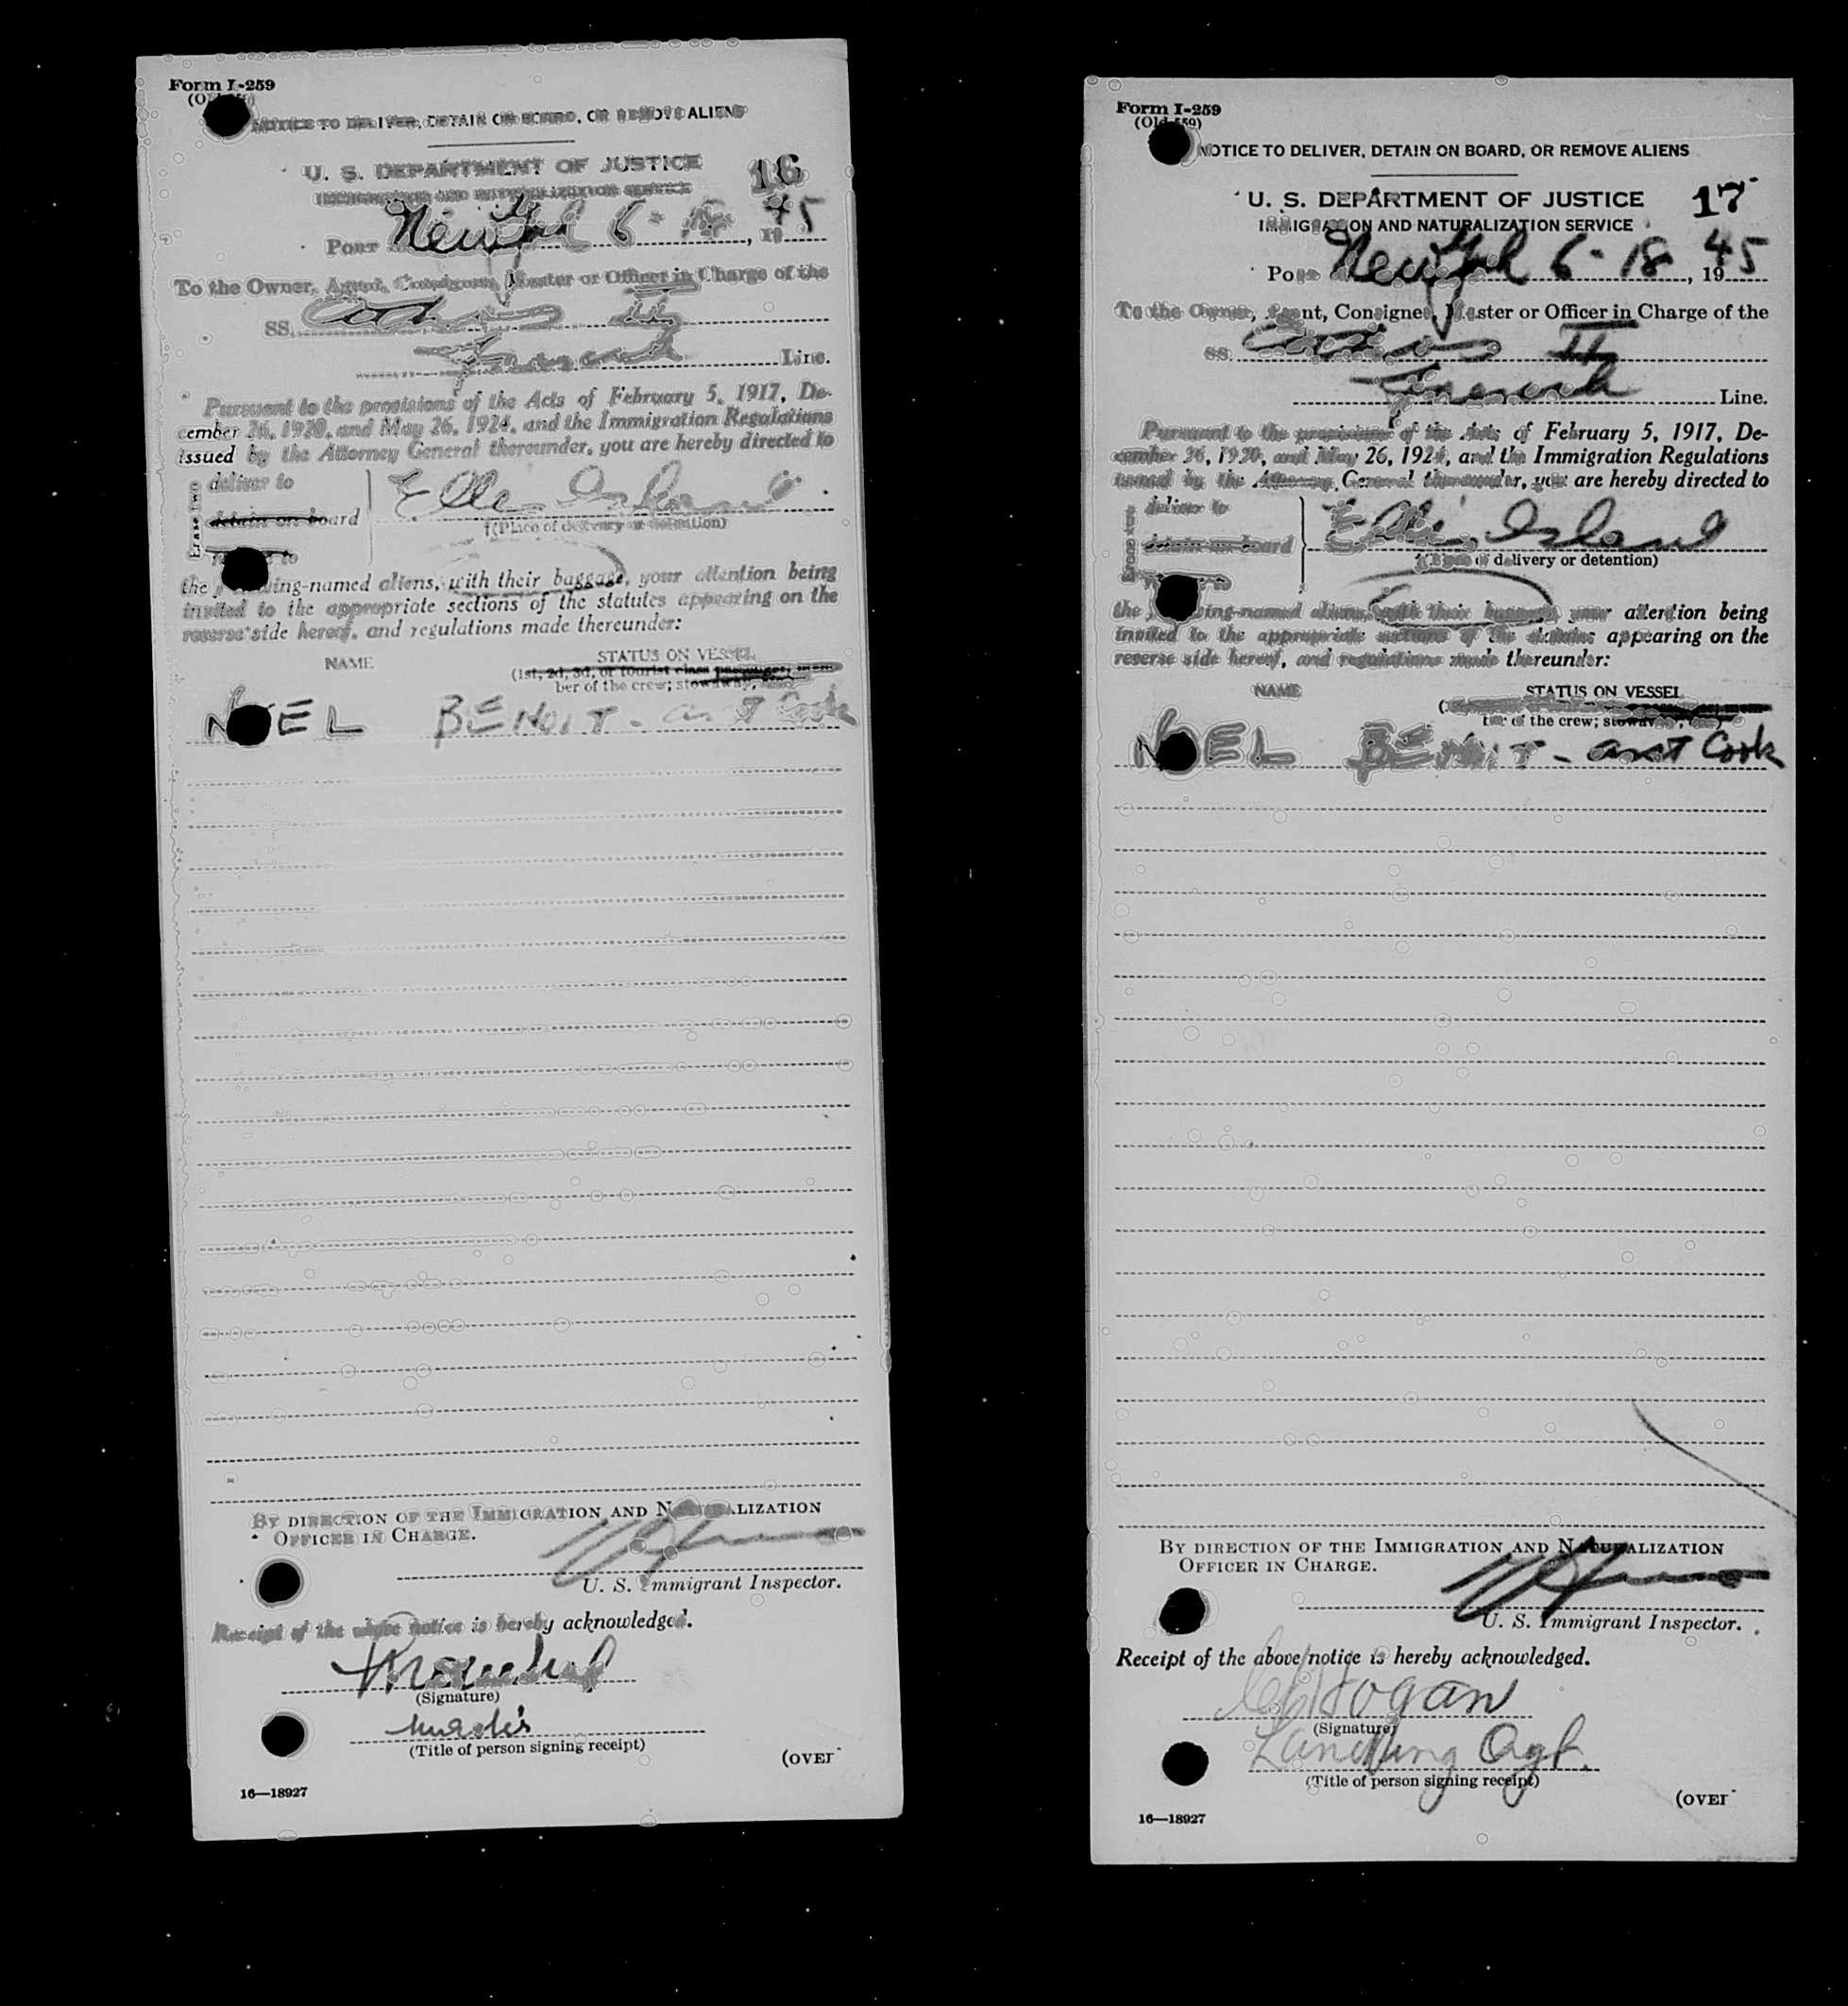 Form I-259
NOTICE TO DELIVER, DETAIN ON BOARD, OR REMOVE ALIENS
U. S. DEPARTMENT OF JUSTICE
16
IMMIGRATION AND NATURALIZATION SERVICE
PORT New York 6- , 1945
To the Owner, Agent, Consignee, Master or Officer in Charge of the
SS. II
French Line.
Pursuant to the provisions of the Acts of February 5, 1917, De-
cember 26, 1920, and May 26, 1924, and the Immigration Regulations
issued by the Attorney General thereunder, you are hereby directed to
Erase two
deliver to
detain on board
to
Ellis Island
(Place of delivery or detention)
the following-named aliens, with their baggage, your attention being
invited to the appropriate sections of the statutes appearing on the
reverse side hereof, and regulations made thereunder:
NAME
STATUS ON VESSEL
(1st, 2d, 3d, or tourist class passenger, mem-
ber of the crew; stowaway,
NOEL BENOIT - asst Cook
BY DIRECTION OF THE IMMIGRATION AND NATURALIZATION
OFFICER IN CHARGE.
U. S. Immigrant Inspector.
Receipt of the above notice is hereby acknowledged.
(Signature)
(Title of person signing receipt)
(OVER
16—18927
Form I-259
(Old 559)
NOTICE TO DELIVER, DETAIN ON BOARD, OR REMOVE ALIENS
U. S. DEPARTMENT OF JUSTICE
17
IMMIGRATION AND NATURALIZATION SERVICE
Port New York 6-18, 1945
To the Owner, Agent, Consignee, Master or Officer in Charge of the
SS. II
French Line.
Pursuant to the provisions of the Acts of February 5, 1917, De-
cember 26, 1920, and May 26, 1924, and the Immigration Regulations
issued by the Attorney General thereunder, you are hereby directed to
Erase two
deliver to
detain on board
to
Ellis Island
(Place of delivery or detention)
the following-named aliens, with their baggage, your attention being
invited to the appropriate sections of the statutes appearing on the
reverse side hereof, and regulations made thereunder:
NAME
STATUS ON VESSEL
ber of the crew; stowaway,
NOEL BENOIT - asst Cook
BY DIRECTION OF THE IMMIGRATION AND NATURALIZATION
OFFICER IN CHARGE.
U. S. Immigrant Inspector.
Receipt of the above notice is hereby acknowledged.
Hogan
(Signature)
Landing Agt.
(Title of person signing receipt)
(OVER
16—18927